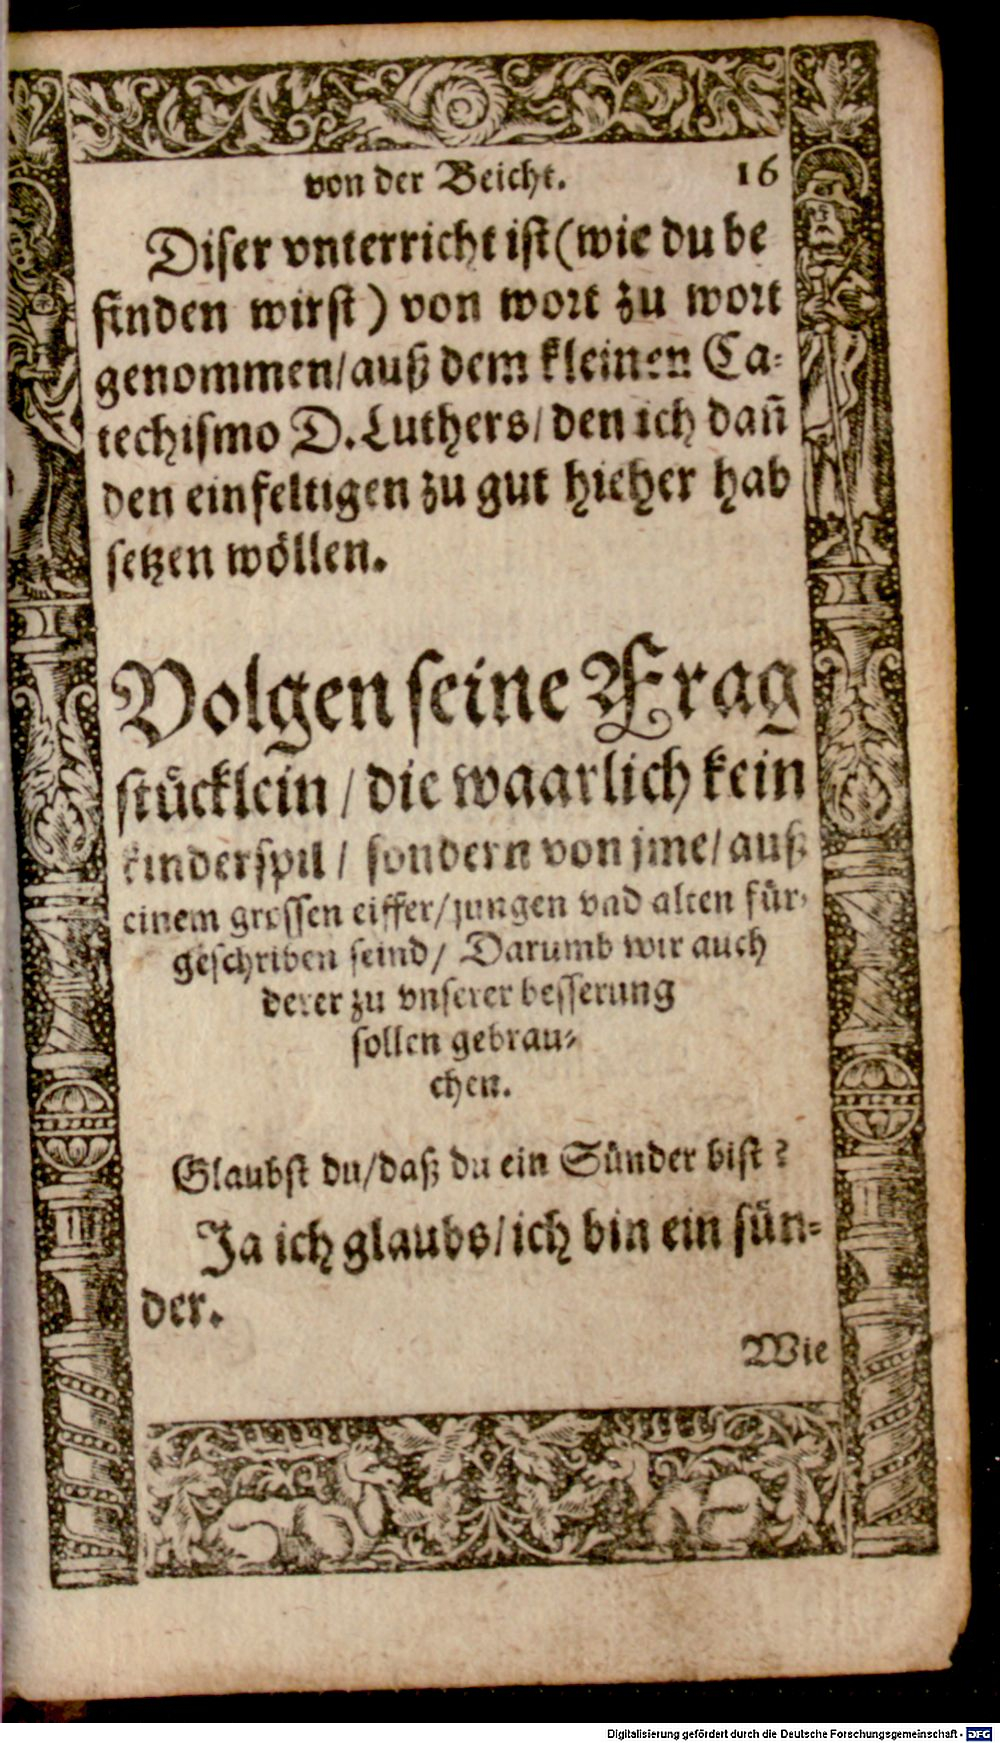 von der Beicht. 16
Diser vnterricht ist (wie du be
finden wirst) von wort zu wort
genommen/ auß dem kleinen Ca-
techismo D. Luthers/ den ich dañ
den einfeltigen zu gut hieher hab
setzen wöllen.
Volgen seine Frag
stücklein / die waarlich kein
kinderspil / sondern von jme/ auß
einem grossen eiffer/ jungen vnd alten für-
geschriben seind/ Darumb wir auch
derer zu vnserer besserung
sollen gebrau-
chen.
Glaubst du/ daß du ein Sünder bist ?
Ja ich glaubs/ ich bin ein sün-
der.
Wie
Digitalisierung gefördert durch die Deutsche Forschungsgemeinschaft - DFG